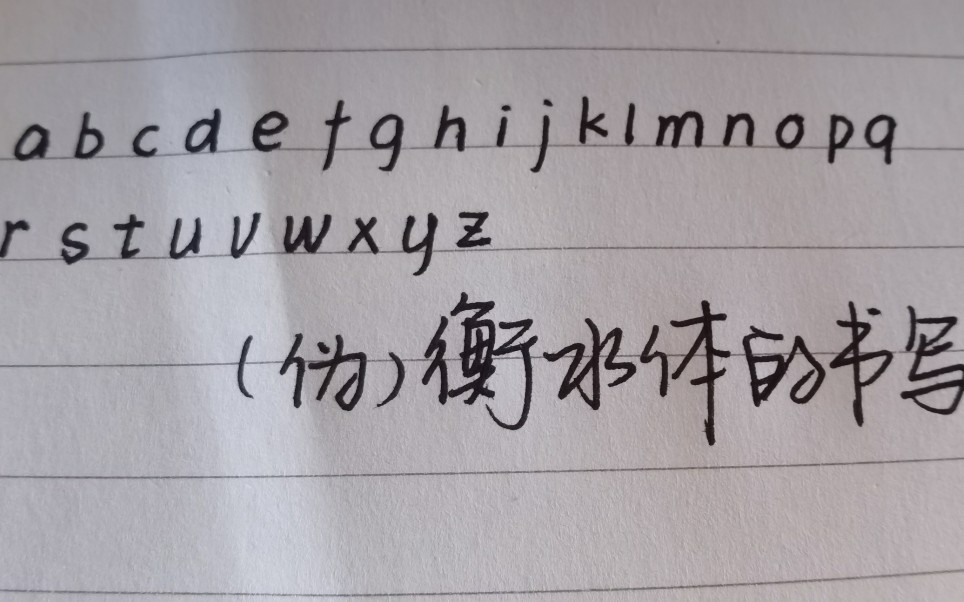 a b c d e f g h i j k l m n o p q
r s t u v w x y z
(伪)衡水体的书写